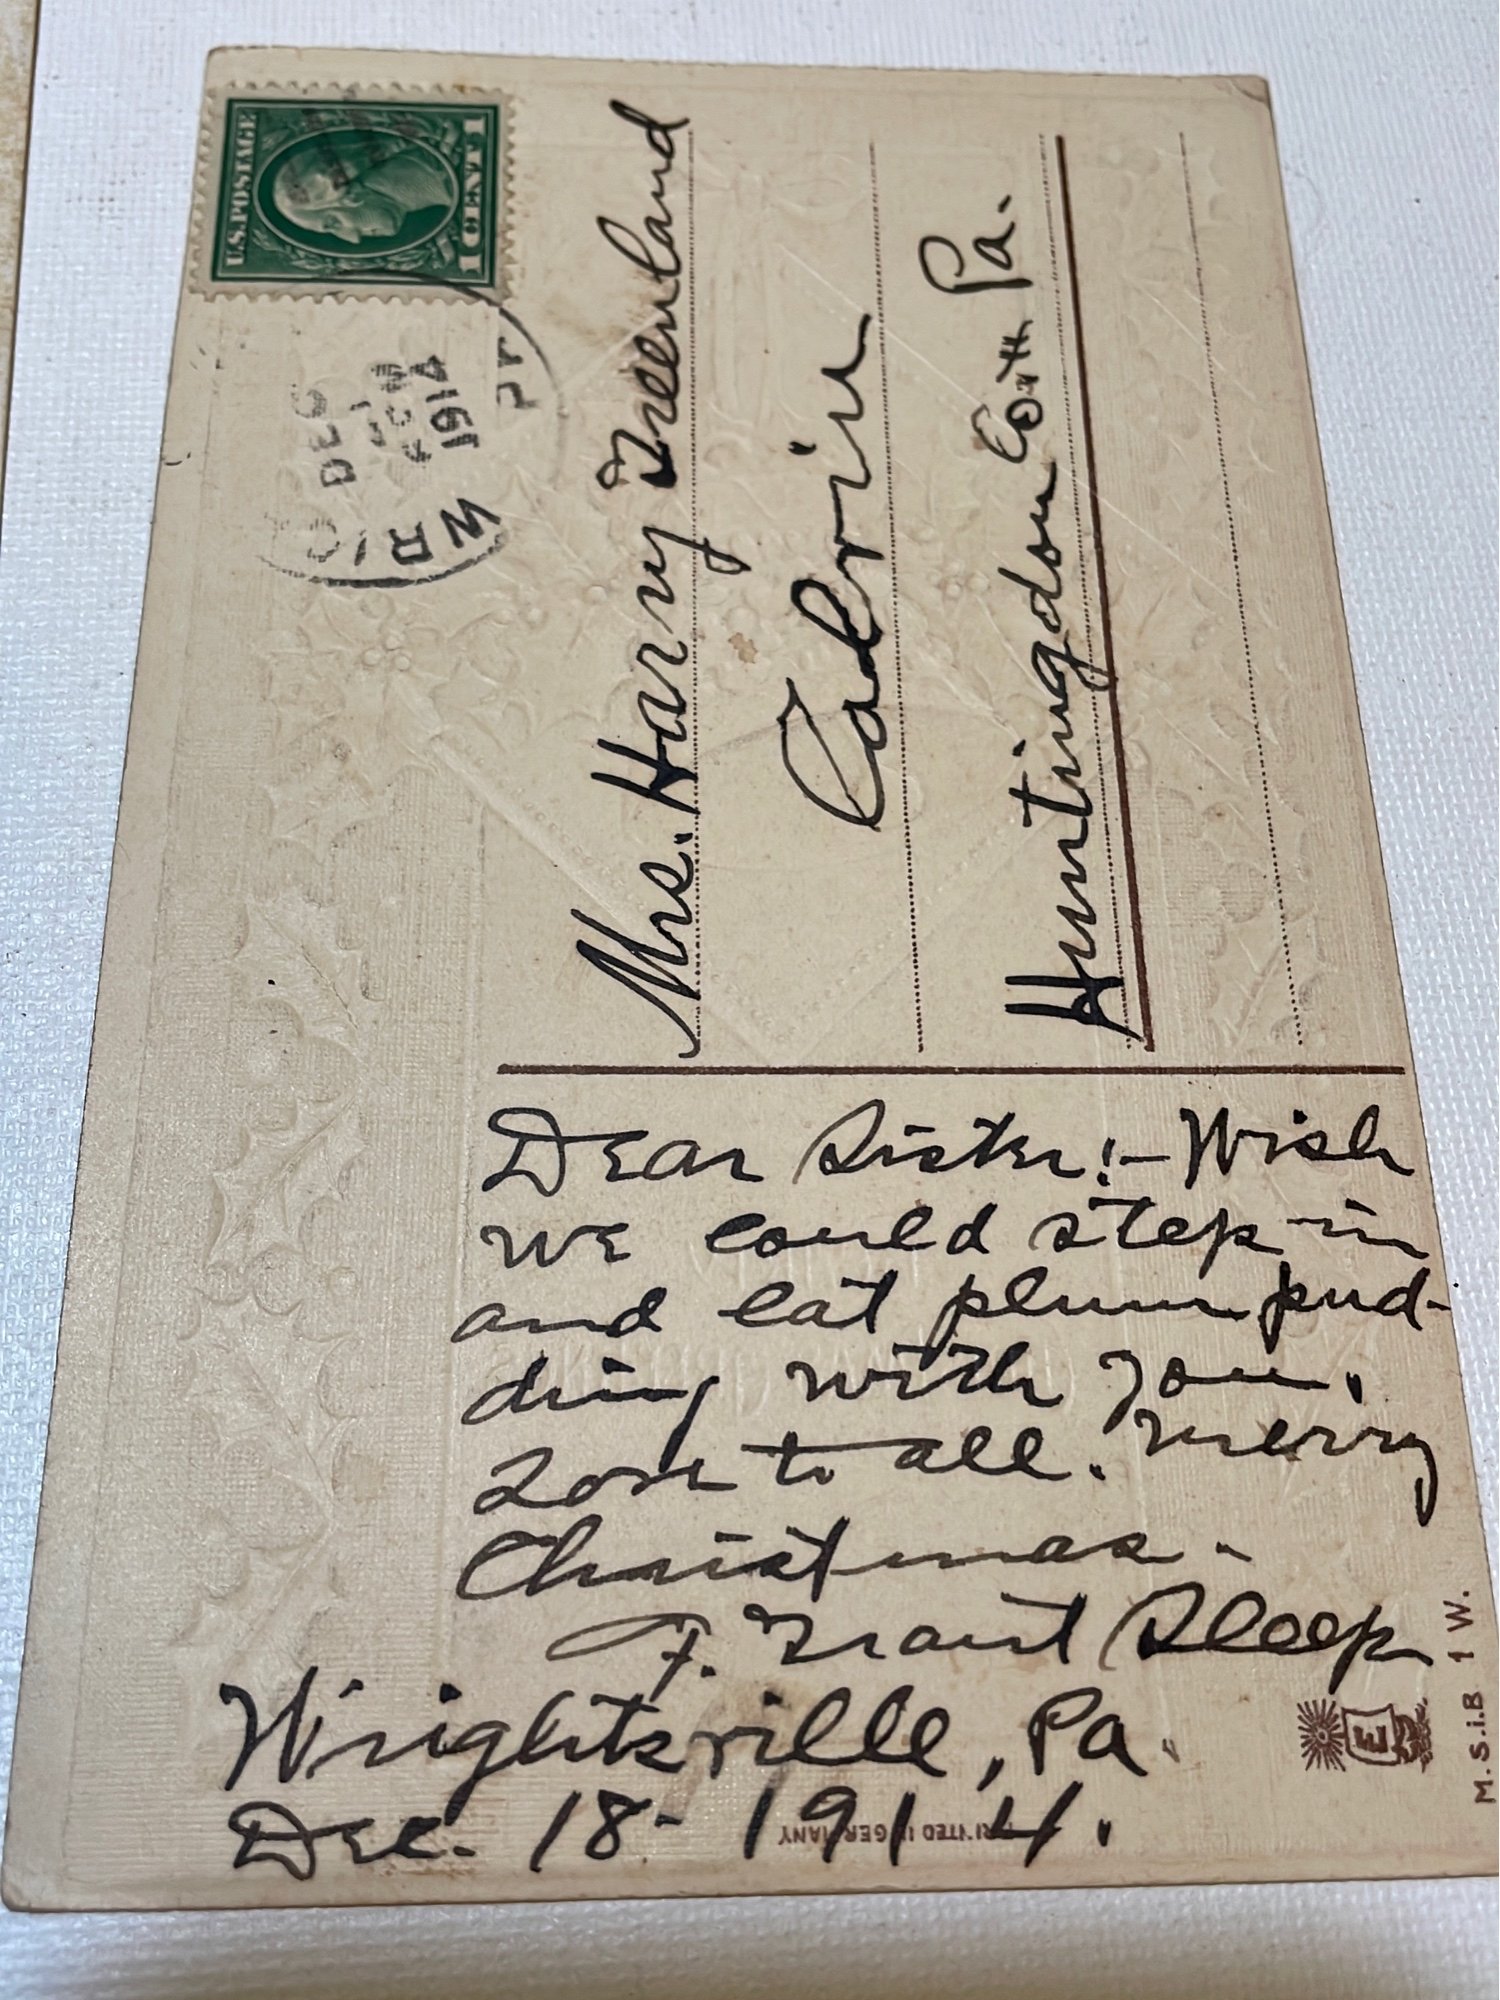 U.S. POSTAGE
1 CENT 1
WRIG
DEC
1914
Mrs. Harry Greenland
Calvin
Huntingdon Co. Pa.
Dear Sister:- Wish
we could step in
and eat plum pud-
ding with you.
Love to all. Merry
Christmas.
F. Grant Sleep
Wrightsville, Pa.
Dec. 18- 1914.
PRINTED IN GERMANY
E
M.S.i.B 1 W.